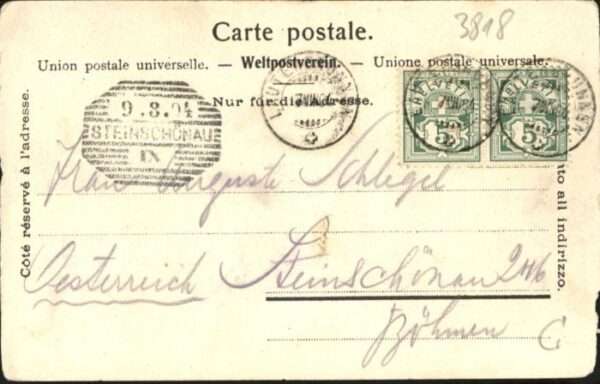 3818
Carte postale.
Union postale universelle. — Weltpostverein. — Unione postale universale.
Nur für die Adresse.
Côté réservé à l'adresse.
9.8.04
STEINSCHÖNAU
IX
HELVETIA
5
5
Frau Auguste Schlegel
Oesterreich Steinschönau
Böhmen
C
to all indirizzo.